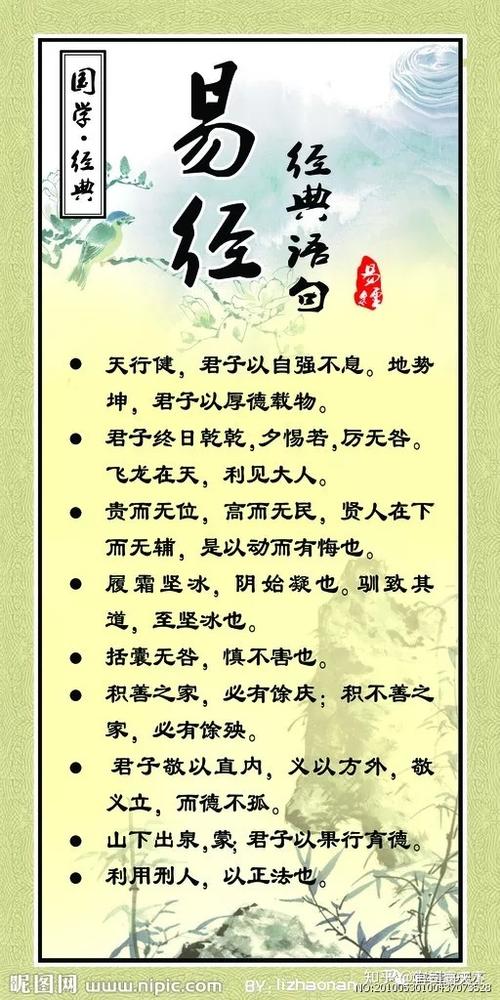 国学·经典
易经
经典语句
易经
● 天行健，君子以自强不息。地势
坤，君子以厚德载物。
● 君子终日乾乾,夕惕若,厉无咎。
飞龙在天，利见大人。
● 贵而无位，高而无民，贤人在下
而无辅，是以动而有悔也。
● 履霜坚冰，阴始凝也。驯致其
道，至坚冰也。
● 括囊无咎，慎不害也。
● 积善之家，必有馀庆；积不善之
家，必有馀殃。
● 君子敬以直内，义以方外，敬
义立，而德不孤。
● 山下出泉,蒙；君子以果行育德。
● 利用刑人，以正法也。
昵图网 www.nipic.com
BY: lizhaonan
知乎